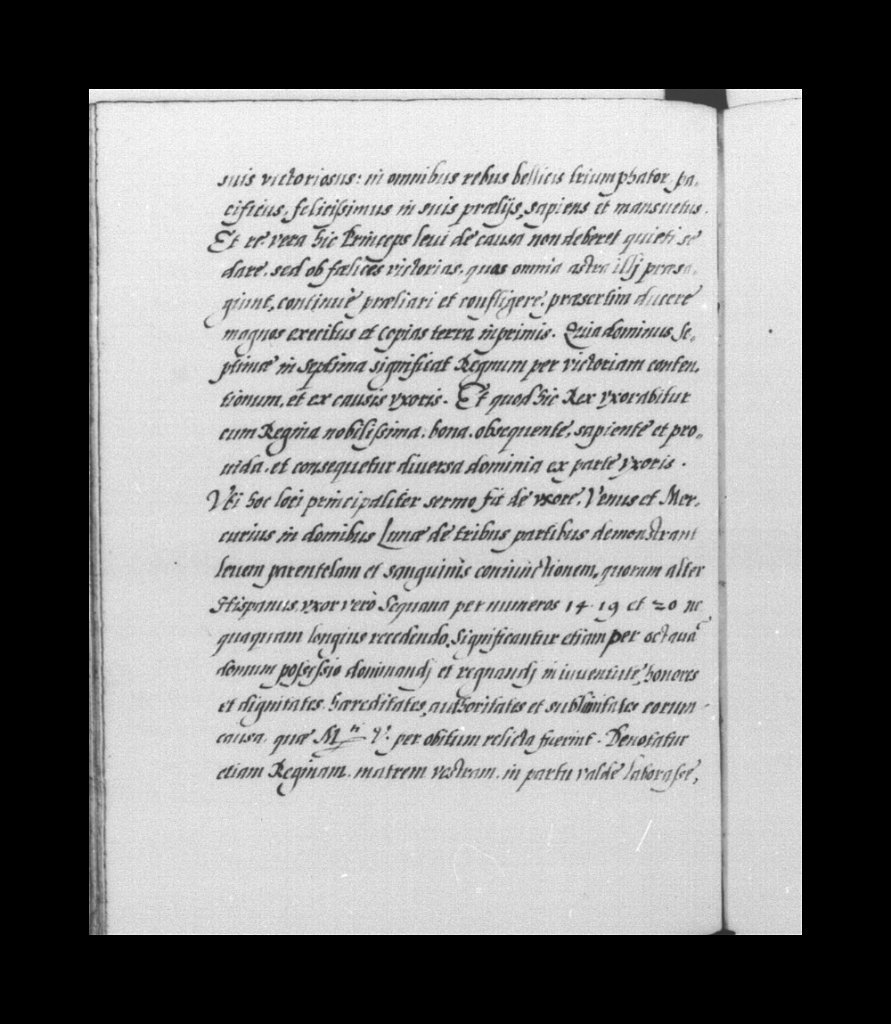 suis victoriosus: in omnibus rebus bellicis triumphator, pa,
cificus, felicissimus in suis prælijs, sapiens et mansuetus.
Et re vera hic Princeps leui de causa non deberet quieti se
dare, sed ob fœlices victorias, quas omnia astra illj præsa,
giunt, continuè præliari et confligere, præsertim ducere
magnos exercitus et copias terra inprimis. Quia dominus se,
ptimæ in septima significat Regnum per victoriam conten,
tionum, et ex causis vxoris. Et quod hic Rex vxorabitur
cum Regina nobilissima, bona, obsequente, sapiente et pro,
uida, et consequetur diuersa dominia ex parte vxoris.
Vti hoc loci principaliter sermo fit de vxore, Venus et Mer,
curius in domibus Lunæ de tribus partibus demonstrant
leuem parentelam et sanguinis coniunctionem, quorum alter
Hispanus, vxor verò Sequana per numeros 14. 19 et 20 ne
quaquam longius recedendo. Significantur etiam per octauā
domum possessio dominandj et regnandj in iuuentute, honores
et dignitates, hæreditates, authoritates et sublimitates eorum
causa, quæ M.ti V. per obitum relicta fuerint. Denotatur
etiam Reginam, matrem vestram, in partu valde laborasse,